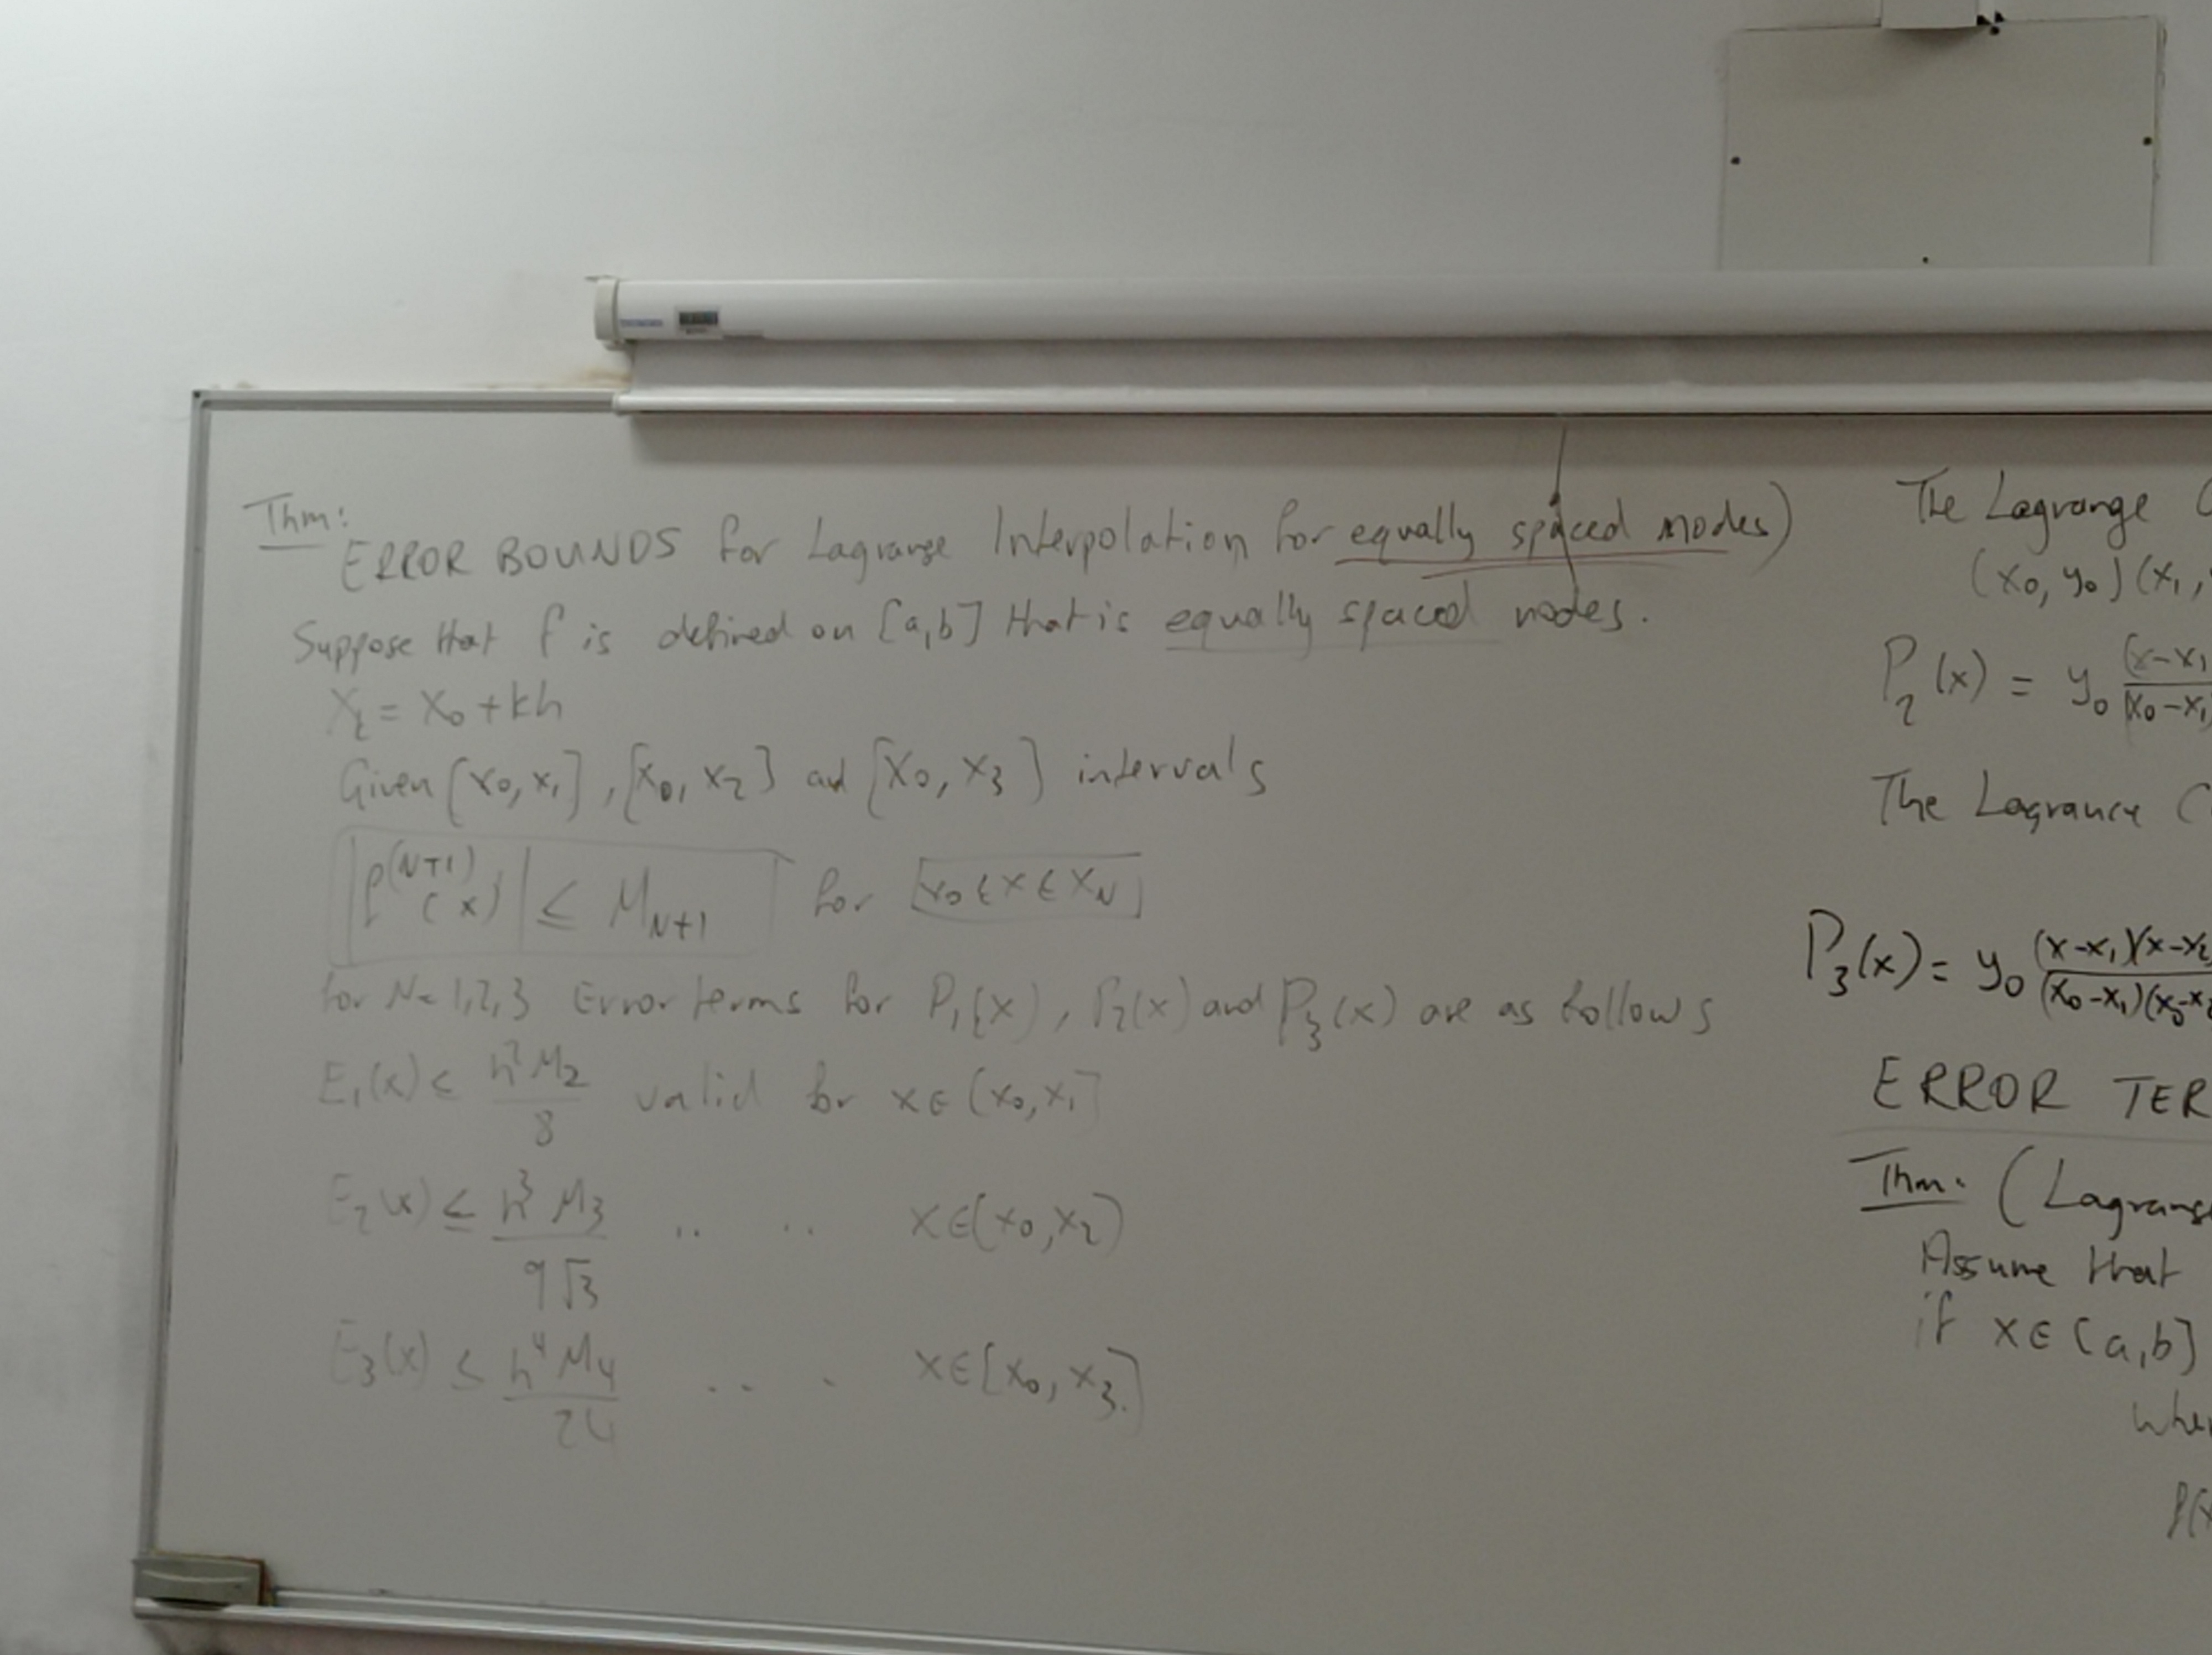 Thm:
ERROR BOUNDS for Lagrange Interpolation for equally spaced nodes)
Suppose that f is defined on [a,b] that is equally spaced nodes.
= x₀ + kh
Given [x₀, x₁], [x₀, x₂] and [x₀, x₃] intervals
|f⁽ᴺ⁺¹⁾(x)| ≤ M_{N+1} for x₀ ≤ x ≤ x_N
for N = 1,2,3 Error terms for P₁(x), P₂(x) and P₃(x) are as follows
E₁(x) ≤ h²M₂/8 valid for x∈[x₀,x₁]
E₂(x) ≤ h³M₃/9√3 .. .. x∈[x₀,x₂]
E₃(x) ≤ h⁴M₄/24 .. . x∈[x₀,x₃]
The Lagrange
(x₀, y₀) (x₁,
P₂(x) = y₀ (x-x₁ / (x₀-x₁
The
P₃(x) = y₀ (x-x₁)(x-x₂ / (x₀-x₁)(x₀-x₂
ERROR TER
Thm: (Lagrang
Assume that
if x∈[a,b]
whe
f(x